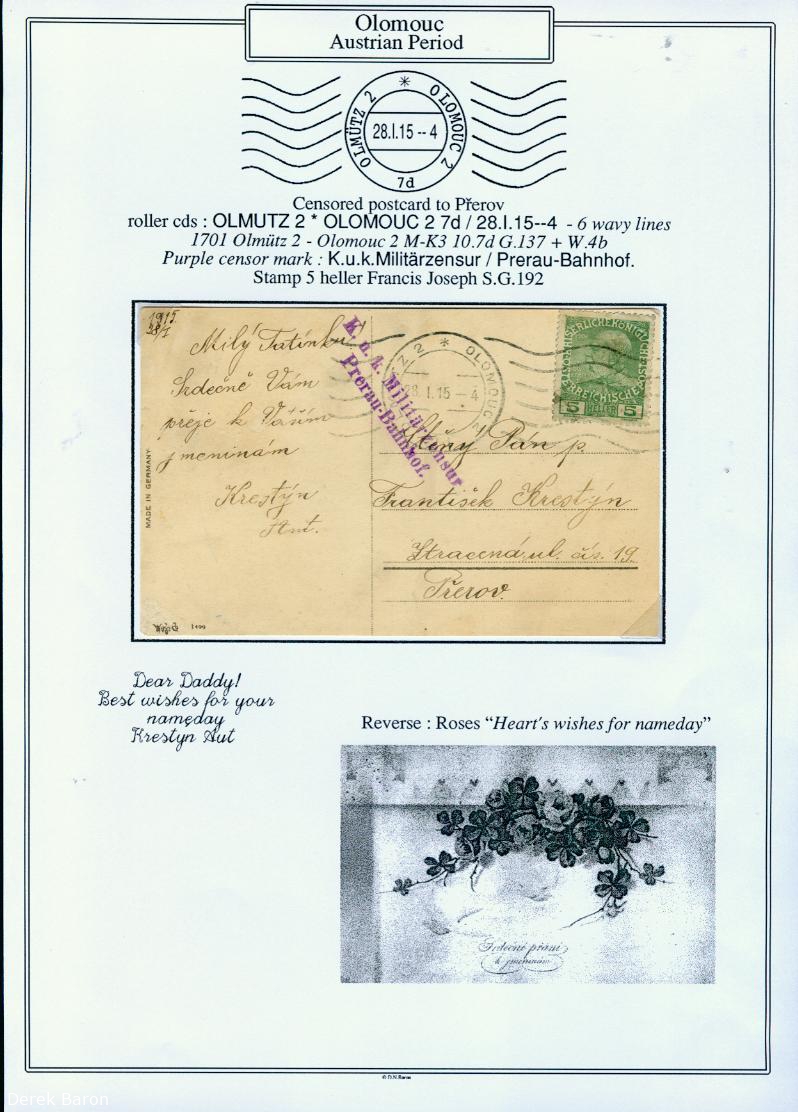 Olomouc
Austrian Period
OLMÜTZ 2 * OLOMOUC 2
28.I.15 -- 4
7d
Censored postcard to Přerov
roller cds : OLMUTZ 2 * OLOMOUC 2 7d / 28.I.15--4 - 6 wavy lines
1701 Olmütz 2 - Olomouc 2 M-K3 10.7d G.137 + W.4b
Purple censor mark : K.u.k.Militärzensur / Prerau-Bahnhof.
Stamp 5 heller Francis Joseph S.G.192
1915
28/I
Milý Tatínku!
Srdečně Vám
přeje k Vašim
jmeninám
Krestýn
Aut.
MADE IN GERMANY
K. u. k. Militärzensur
Prerau-Bahnhof.
Z 2 * OLOMOUC
28.I.15 -- 4
5 HELLER 5
Ctěný Pán p.
František Krestýn
Stracená ul. čís. 19
Přerov
Dear Daddy!
Best wishes for your
nameday
Krestyn Aut
Reverse : Roses “Heart's wishes for nameday”
Srdečné přání
k jmeninám
© D.N.Baron
Derek Baron